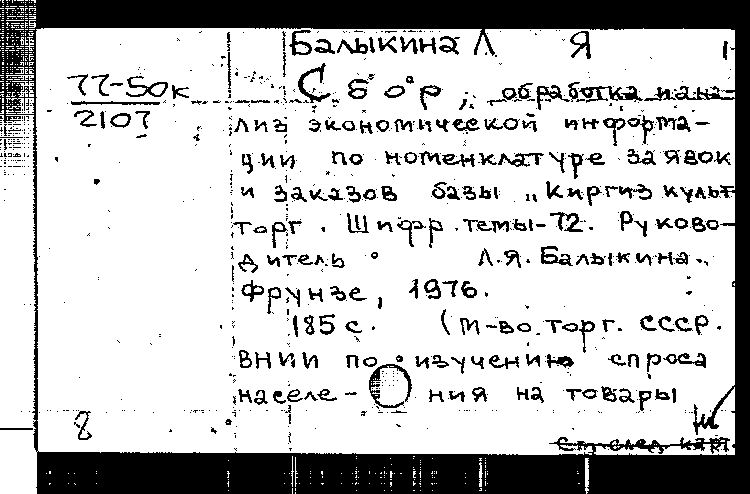 Балыкина Л Я
77-50к
2107
Сбор, обработка и ана-
лиз экономической информа-
ции по номенклатуре заявок
и заказов базы „Киргизкульт
торг. Шифр темы-72. Руково-
дитель Л.Я. Балыкина.
Фрунзе, 1976.
185 с. (М-во торг. СССР.
ВНИИ по изучению спроса
населе- ния на товары
8
См. след. карт.